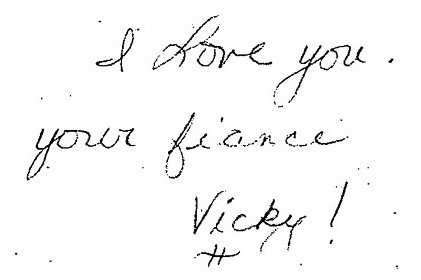 I Love you.
your fiance
Vicky!